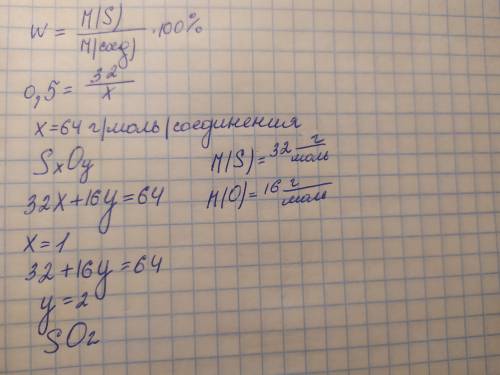 w = M(S) / M(соед) · 100%
0,5 = 32 / x
x = 64 г/моль (соединения
SxOy
M(S) = 32 г/моль
32x + 16y = 64
M(O) = 16 г/моль
x = 1
32 + 16y = 64
y = 2
SO2